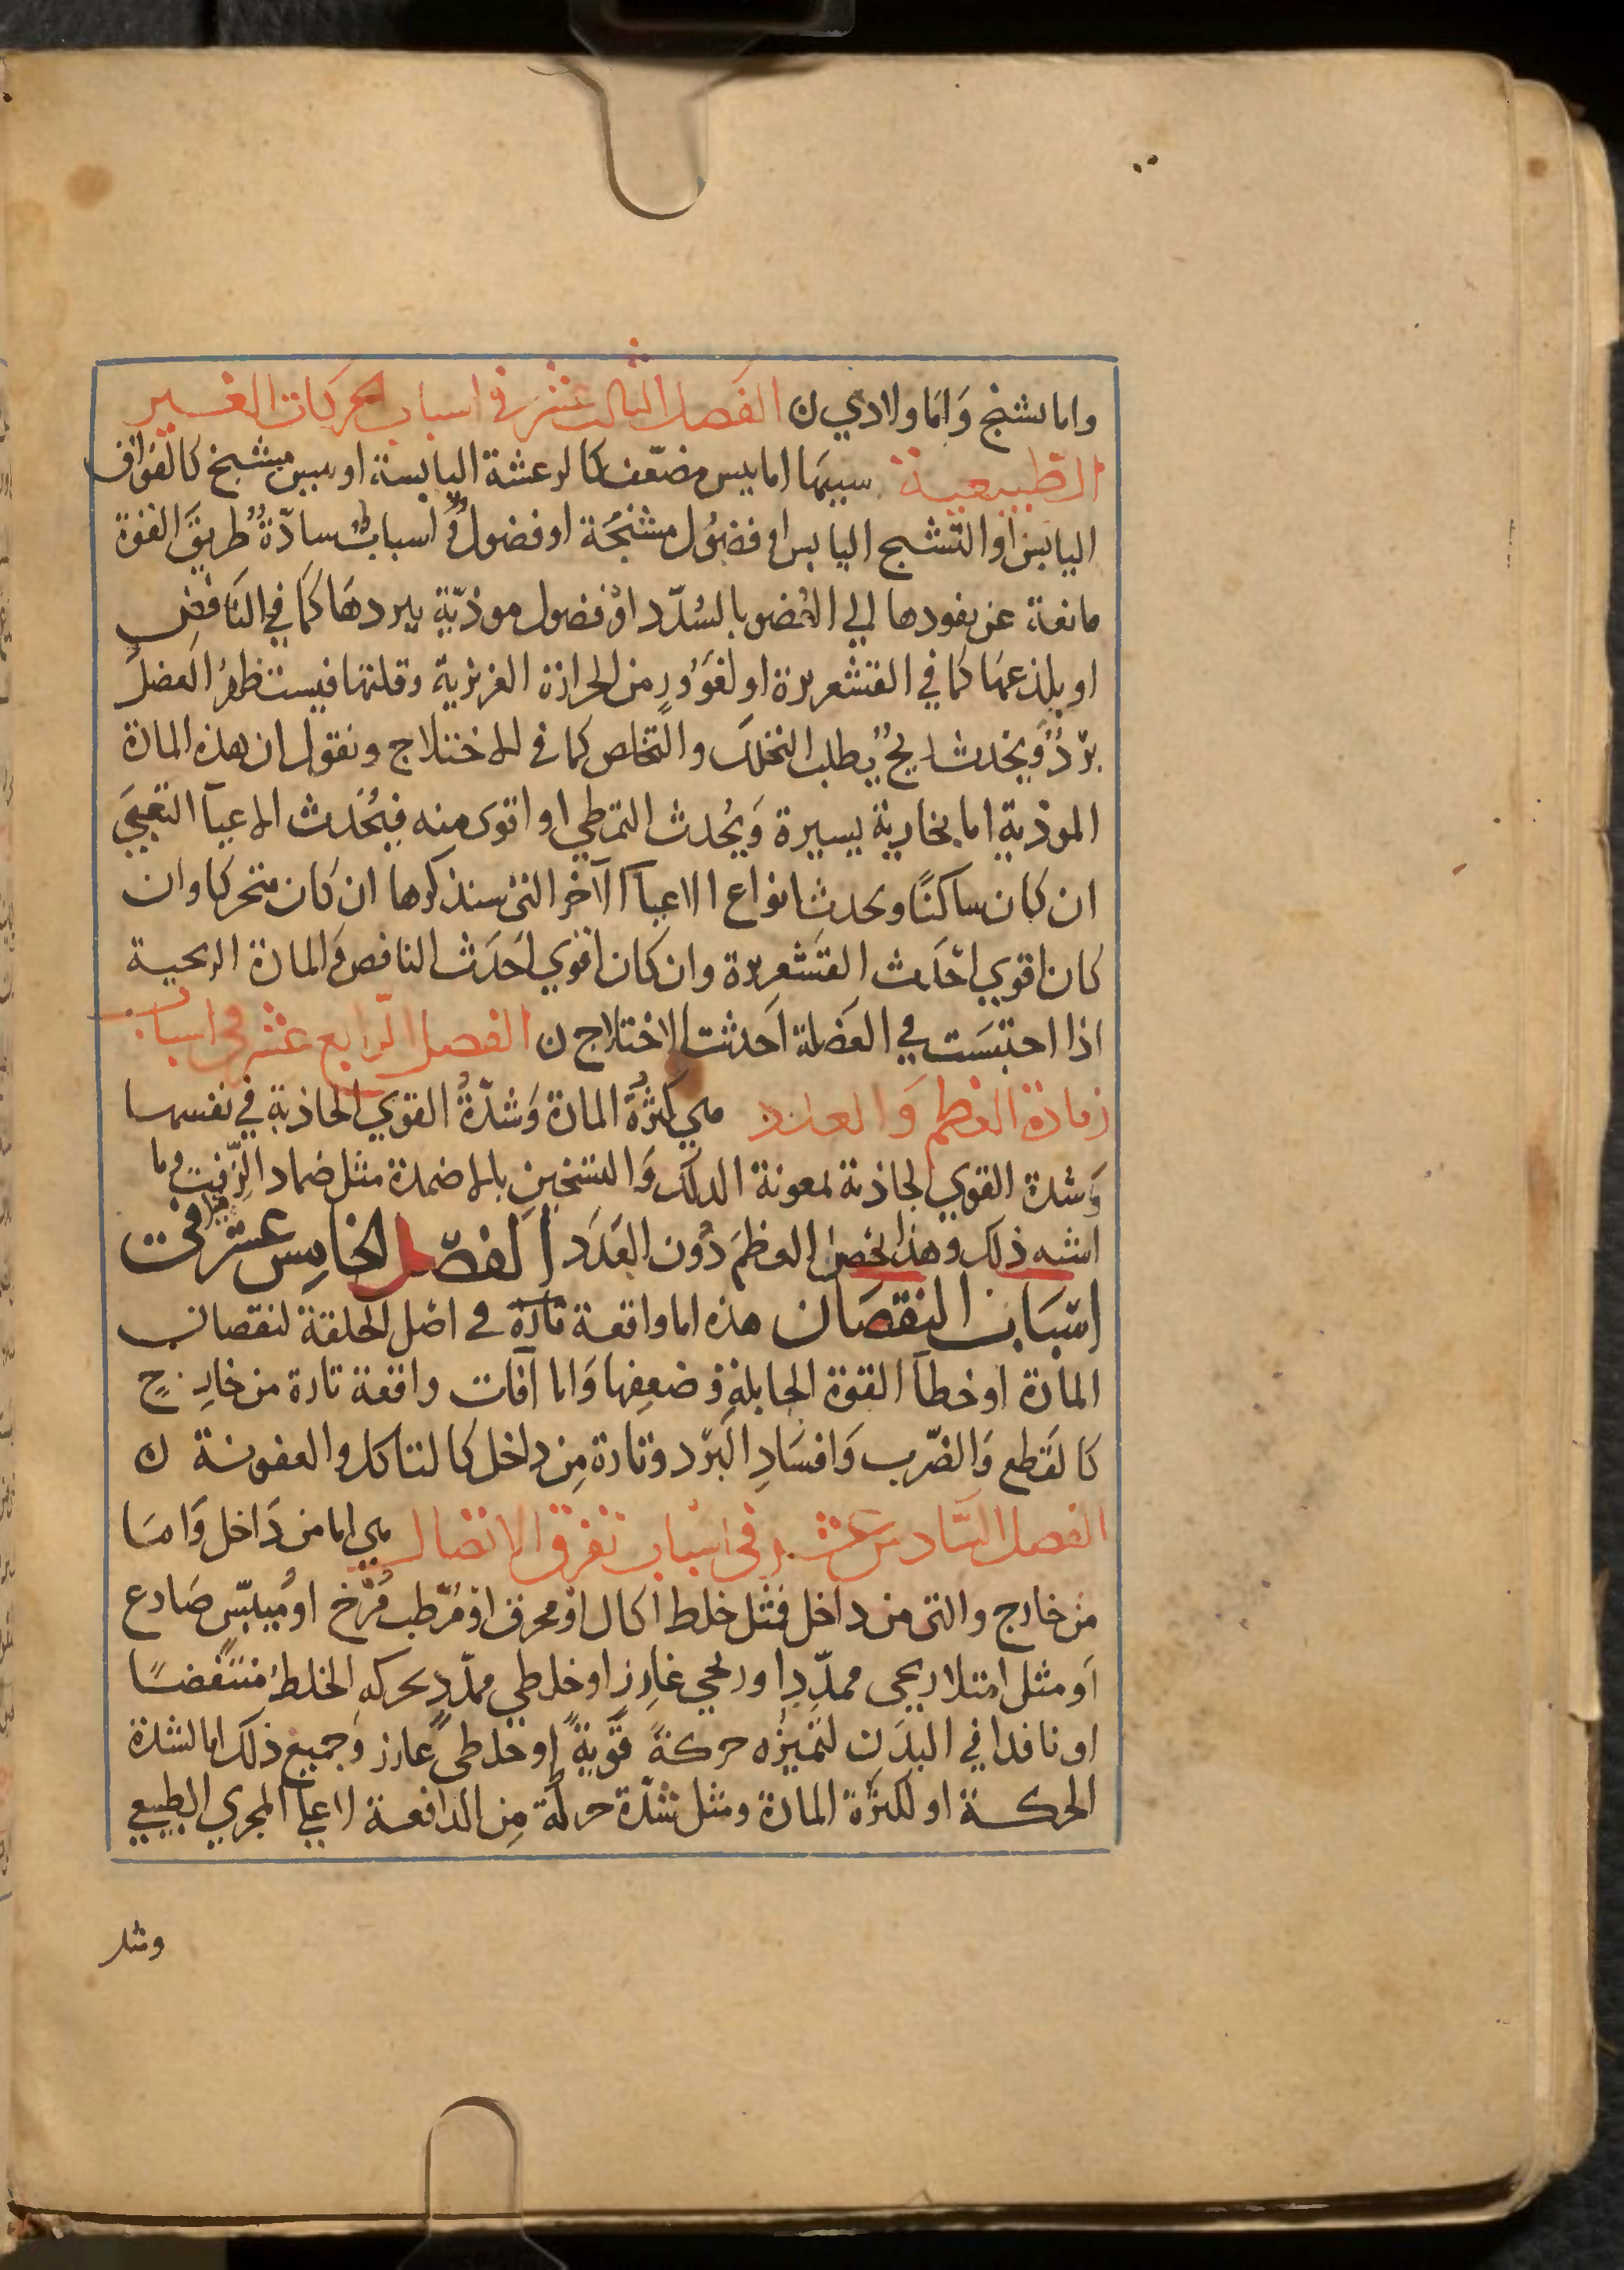 واما تشنج وَامَا ولادي ن الفصل الثالث عشر في اسباب الحركات الغير
الطبيعية سببها اما يبس مضعّف كالرعشة اليابسة او يبس مشنج كالفواق
اليابس او التشنج اليابس او فضول مشنجة او فضول واسباب سادّة طريق القوة
مانعة عن نفودها الي العضو بالسُدّد اوْ فضول موذيّة ببردهَا كَمَا في النَافض
او بلذعهَا كما في القشعريرة او لغَوُورٍ من الحرارة الغريزية وقلتها فيستظهرُ العضل
بردٌ ويحدث ريحٌ يطلب التحلل والتخلص كما في الاختلاج ونقول ان هذه المادة
الموذية اما بخارية يسيرة وَيُحدث التمطي او اقوى منه فيُحدث الاعيآ التعبي
ان كان ساكنًا ويحدث انواع الاعيآ الآخر التى سنذكرها ان كان متحركا وان
كان اقوي احدث القشعريرة وان كان اقوي احَدَث النافض وَالمادة الريحية
اذا احتبَسَت في العَضلة اَحدثت الاختلاج ن الفصل الرّابع عشر في اسباب
زيادة العظم وَالعدد هي كثرةُ المادة وَشدّةُ القوي الجاذبة في نفسها
وَشدة القوي الجاذبة بمعونة الدلك وَالتسخينِ بالاضمدة مثل ضماد الزّفت وما
اشبه ذلك وهذا يخص العظمَ دُون العَدَد الفصّل الخامِس عشر في
اسبَاب النقصَان هذه اما واقعة تارة في اصْل الخلقة لنقصان
المادة او خطآ القوة الجابلةِ وضعفِها وَاما آفات واقعة تارة من خارجٍ
كالقَطع وَالضّرب وَافسَادِ البَرد وتارة مِن داخل كالتاكل والعفونة ن
الفصل السَّادس عشر في اسْباب تفرق الاتصال هي اما من دَاخل وَامَا
من خارج والتى من داخل فمثل خلط اكال اوْ محرق اوْ مُرّطب مُرْخ اوْ مُيبّس صَادع
اَو مثل امتلا ريحى ممدّدٍ او ريحي غارز او خلطي ممدّدٍ بحركه الخلط منتفضًا
او نافدا في البدَن لتميزه حركةً قوّيةً او خلطىً غارز وَجميع ذلك اما لشدة
الحركة او لكثرة المادة ومثل شدّة حركة مِن الدافعة لا علي المجري الطبيعي
ومثل